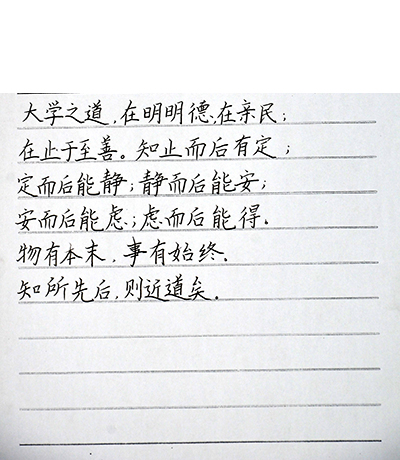 大学之道，在明明德，在亲民；
在止于至善。知止而后有定；
定而后能静；静而后能安；
安而后能虑；虑而后能得。
物有本末，事有始终。
知所先后，则近道矣。